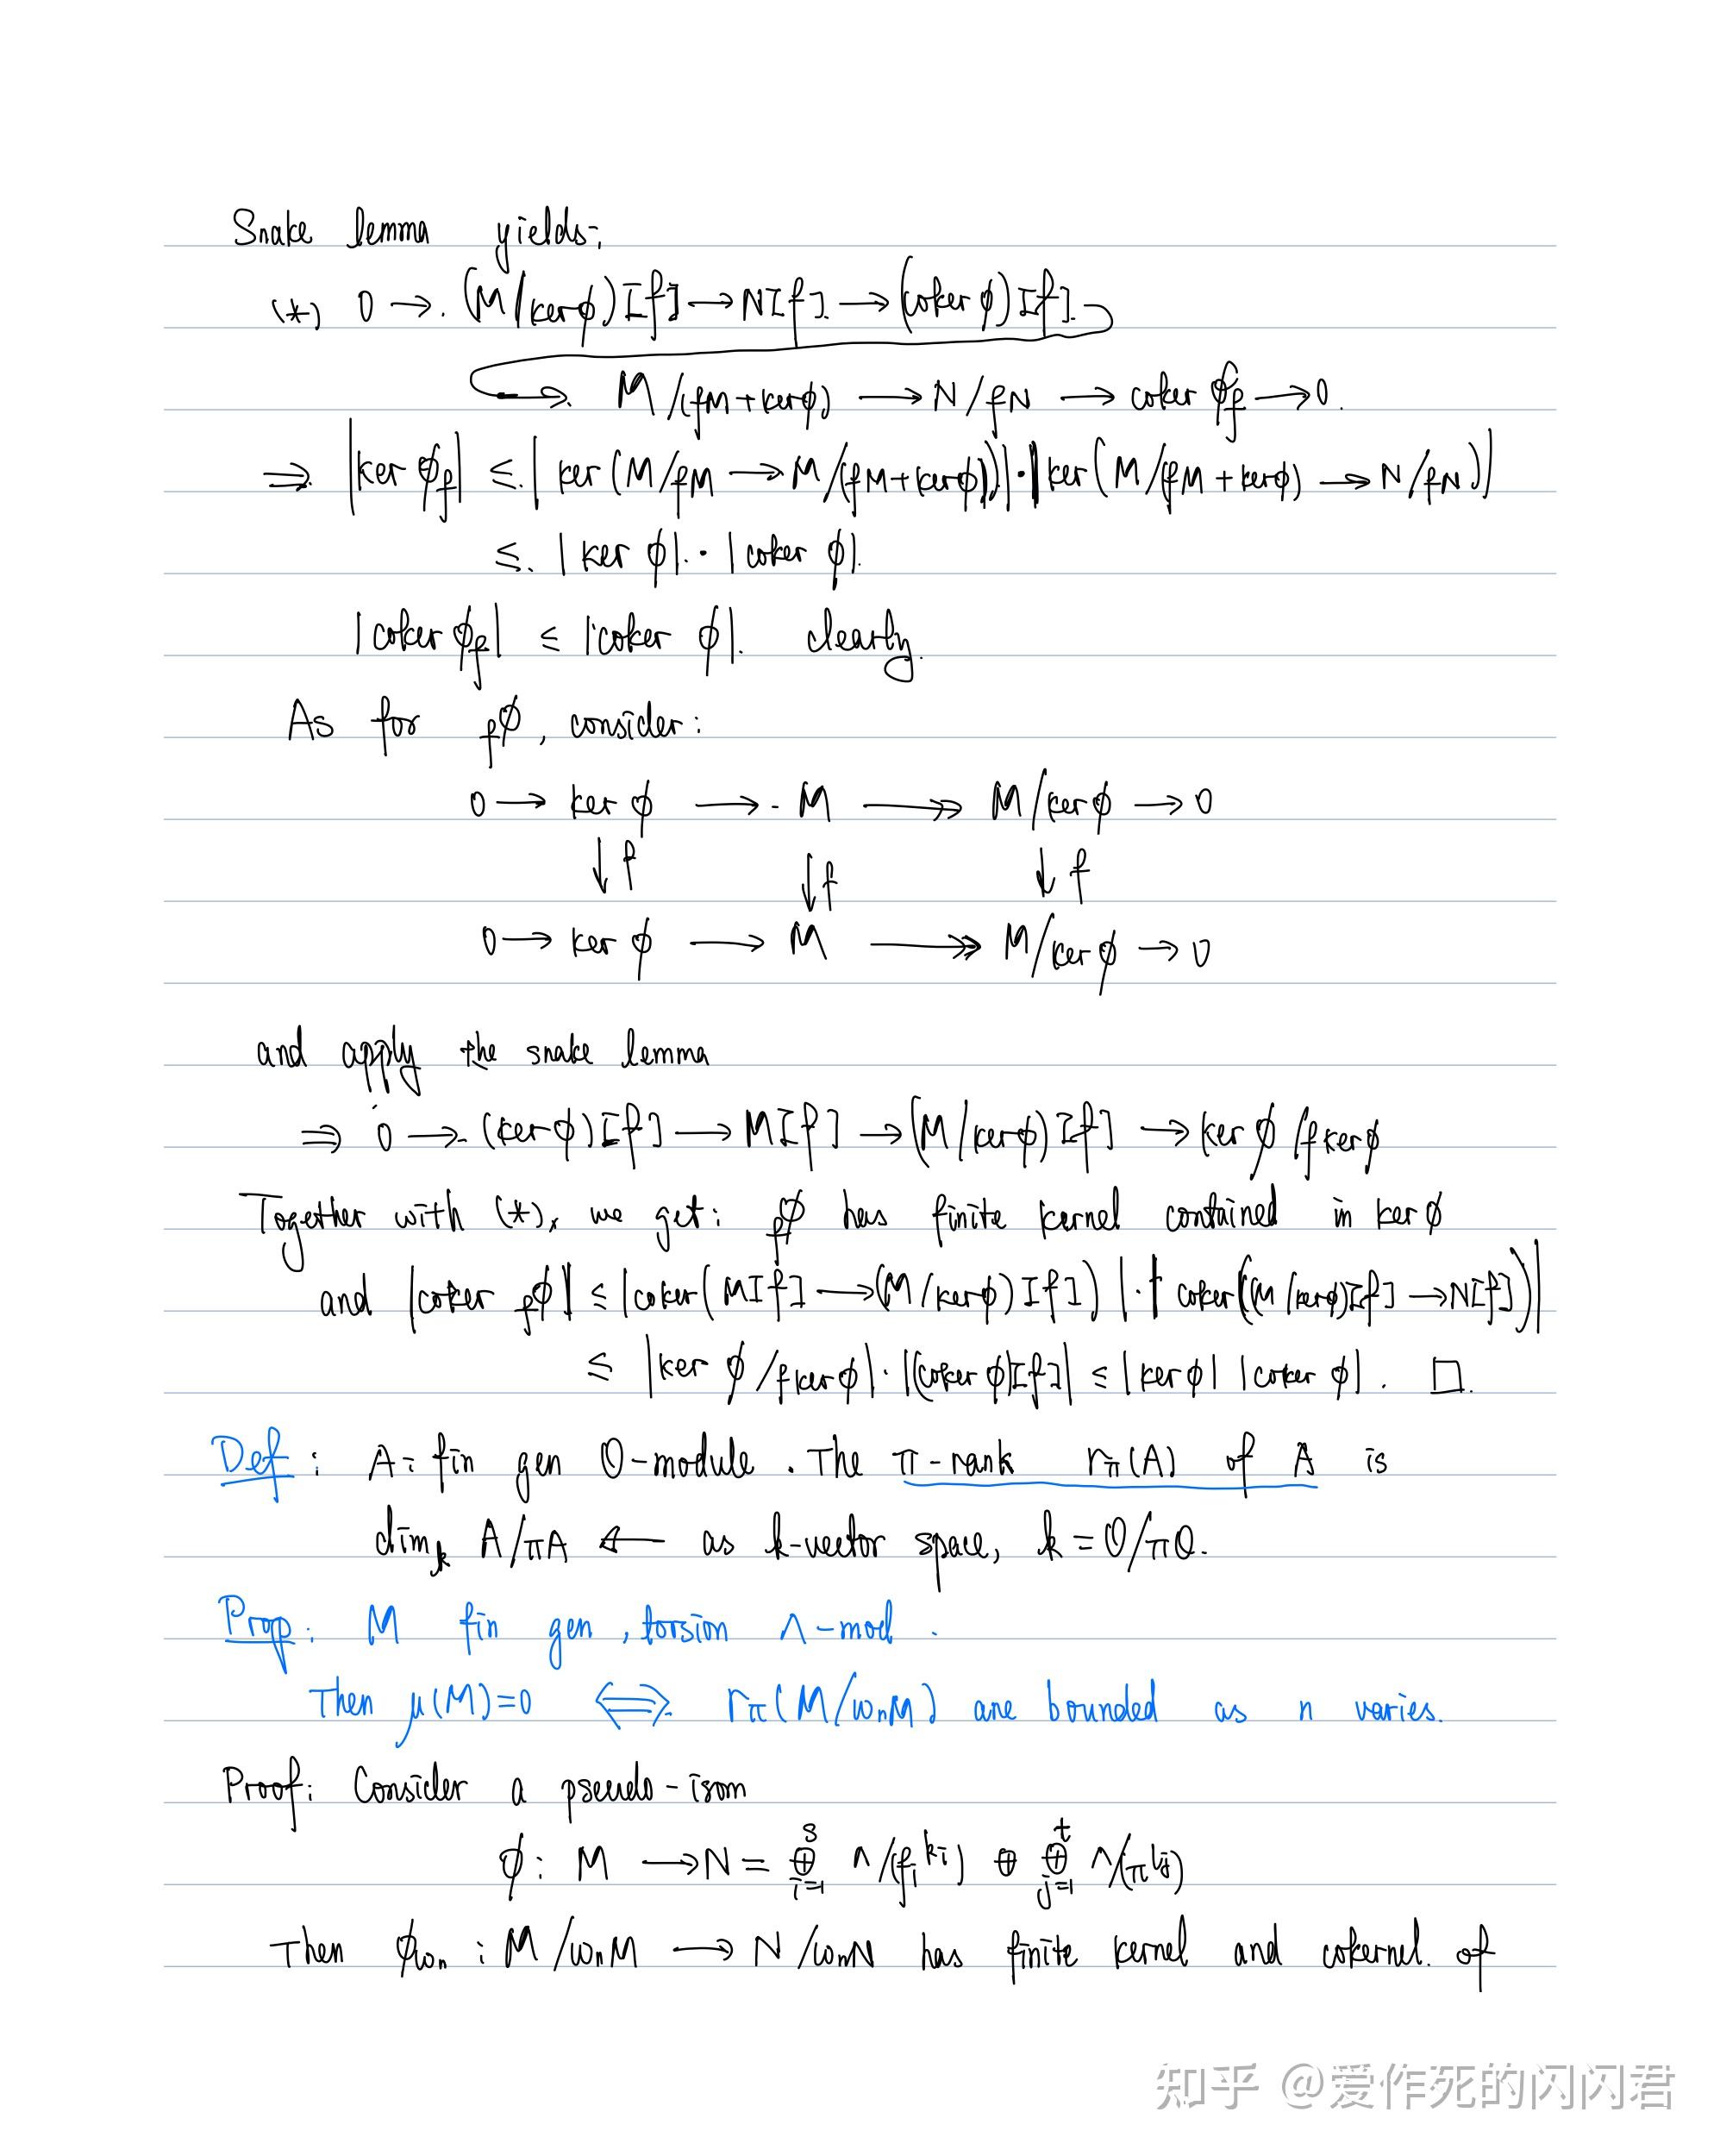 Snake lemma yields:
(*) 0 → (M/kerφ)[f] → N[f] → (coker φ)[f]
→ M/(fM+kerφ) → N/fN → coker φ_f → 0.
⇒ |ker φ_f| ≤ |ker(M/fM → M/(fM+kerφ))|·|ker(M/(fM+kerφ) → N/fN)|
≤ |ker φ|·|coker φ|.
|coker φ_f| ≤ |coker φ|. clearly.
As for _fφ, consider:
0 → ker φ → M ↠ M/kerφ → 0
↓f ↓f ↓f
0 → ker φ → M ↠ M/kerφ → 0
and apply the snake lemma
⇒ 0 → (kerφ)[f] → M[f] → (M/kerφ)[f] → ker φ/f kerφ
Together with (*), we get: _fφ has finite kernel contained in ker φ
and |coker _fφ| ≤ |coker(M[f] → (M/kerφ)[f])|·|coker((M/kerφ)[f] → N[f])|
≤ |ker φ/f kerφ|·|(coker φ)[f]| ≤ |ker φ| |coker φ|. □.
Def: A: fin gen O-module. The π-rank r_π(A) of A is
dim_k A/πA ← as k-vector space, k = O/πO.
Prop: M fin gen, torsion Λ-mod.
Then μ(M)=0 ⇔ r_π(M/ω_nM) are bounded as n varies.
Proof: Consider a pseudo-isom
φ: M → N = ⊕_{i=1}^{s} Λ/(f_i^{k_i}) ⊕ ⊕_{j=1}^{t} Λ/(π^{l_j})
Then φ_{ω_n}: M/ω_nM → N/ω_nN has finite kernel and cokernel of
知乎 @爱作死的闪闪君